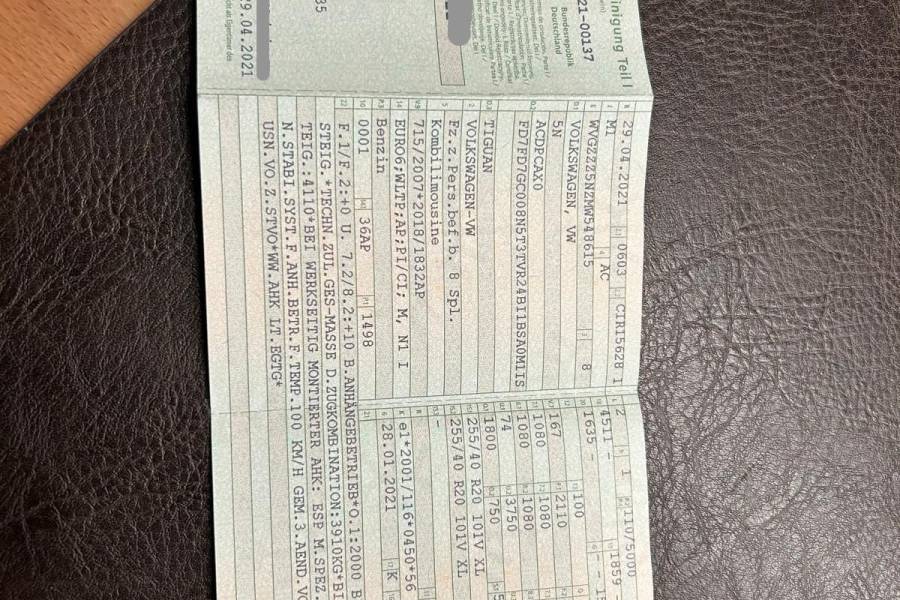 inigung Teil I
21-00137
Bundesrepublik
Deutschland
85
29.04.2021
29.04.2021 0603 CIR15628 1
M1 AC
WVGZZZ5NZMW548615 8
VOLKSWAGEN, VW
5N
ACDPCAX0
FD7FD7GC008N5T3TVR24BI1BSA0M1IS
TIGUAN
VOLKSWAGEN-VW
Fz.z.Pers.bef.b. 8 Spl.
Kombilimousine
715/2007*2018/1832AP
EURO6;WLTP;AP;PI/CI; M, N1 I
Benzin
0001 36AP 1498
F.1/F.2:+0 U. 7.2/8.2:+10 B.ANHÄNGEBETRIEB*O.1:2000 B
STEIG.*TECHN.ZUL.GES-MASSE D.ZUGKOMBINATION:3910KG*BI
TEIG.:4110*BEI WERKSEITIG MONTIERTER AHK: ESP M.SPEZ.
N.STABI.SYST.F.ANH.BETR.F.TEMP.100 KM/H GEM.3.AEND.VO
USN.VO.Z.STVO*WW.AHK LT.EGTG*
2 1 110/5000
4511 - 1859 -
1635 -
100
167 2110
1080 1080
1080 1080
74 3750
1800 750
255/40 R20 101V XL
255/40 R20 101V XL
-
e1*2001/116*0450*56
28.01.2021 K